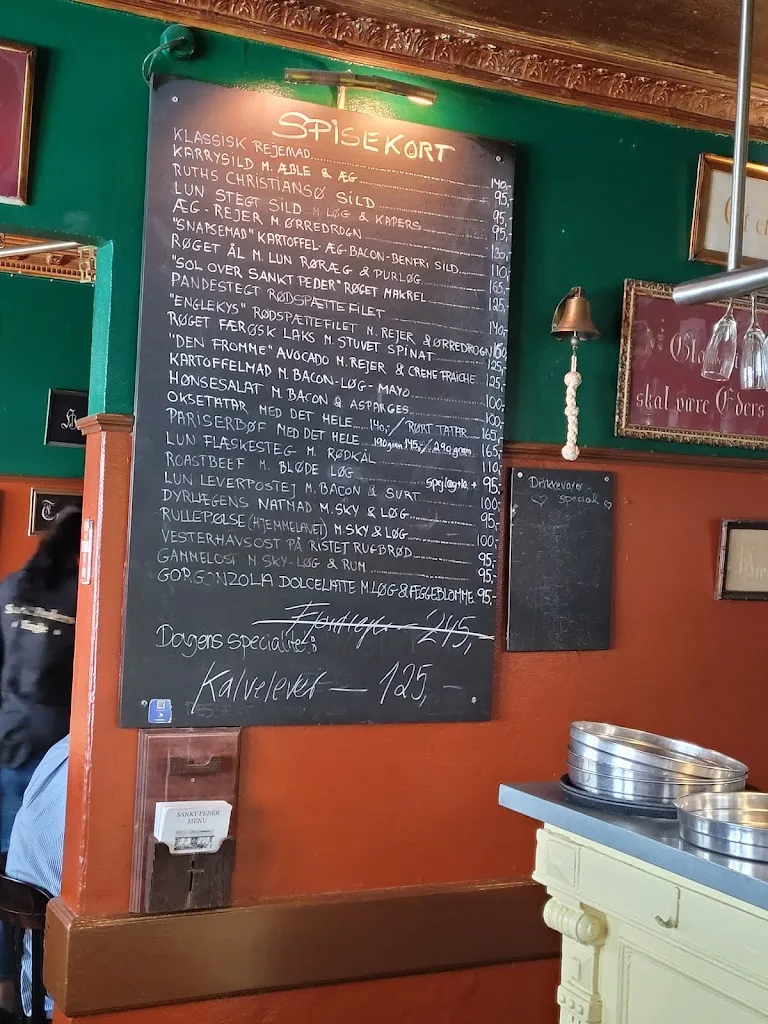 SPISEKORT
KLASSISK REJEMAD 140,-
KARRYSILD M. ÆBLE & ÆG 95,-
RUTHS CHRISTIANSØ SILD 95,-
LUN STEGT SILD M. LØG & KAPERS 95,-
ÆG - REJER M ØRREDROGN 130,-
"SNAPSEMAD" KARTOFFEL-ÆG-BACON-BENFRI SILD 110,-
RØGET ÅL M. LUN RØRÆG & PURLØG 165,-
"SOL OVER SANKT PEDER" RØGET MAKREL 125,-
PANDESTEGT RØDSPÆTTEFILET 140,-
"ENGLEKYS" RØDSPÆTTEFILET M. REJER & ØRREDROGN 160,-
RØGET FÆRØSK LAKS M. STUVET SPINAT 125,-
"DEN FROMME" AVOCADO M. REJER & CREME FRAICHE 125,-
KARTOFFELMAD M. BACON-LØG-MAYO 100,-
HØNSESALAT M. BACON & ASPARGES 100,-
OKSETATAR MED DET HELE 140,-/ RØRT TATAR 165,-
PARISERBØF MED DET HELE 190gram 145,-/290 gram 165,-
LUN FLÆSKESTEG M. RØDKÅL 110,-
ROASTBEEF M. BLØDE LØG 95,-
LUN LEVERPOSTEJ M. BACON & SURT 100,-
DYRLÆGENS NATMAD M. SKY & LØG 95,-
RULLEPØLSE (HJEMMELAVET) M. SKY & LØG 100,-
VESTERHAVSOST PÅ RISTET RUGBRØD 95,-
GAMMELOST M SKY-LØG & RUM 95,-
GORGONZOLA DOLCELATTE M. LØG & ÆGGEBLOMME 95,-
245,-
Dagens specialitet:
Kalvelever — 125,-
Drikkevarer
special
SANKT PEDER
MENU
skal være Eders